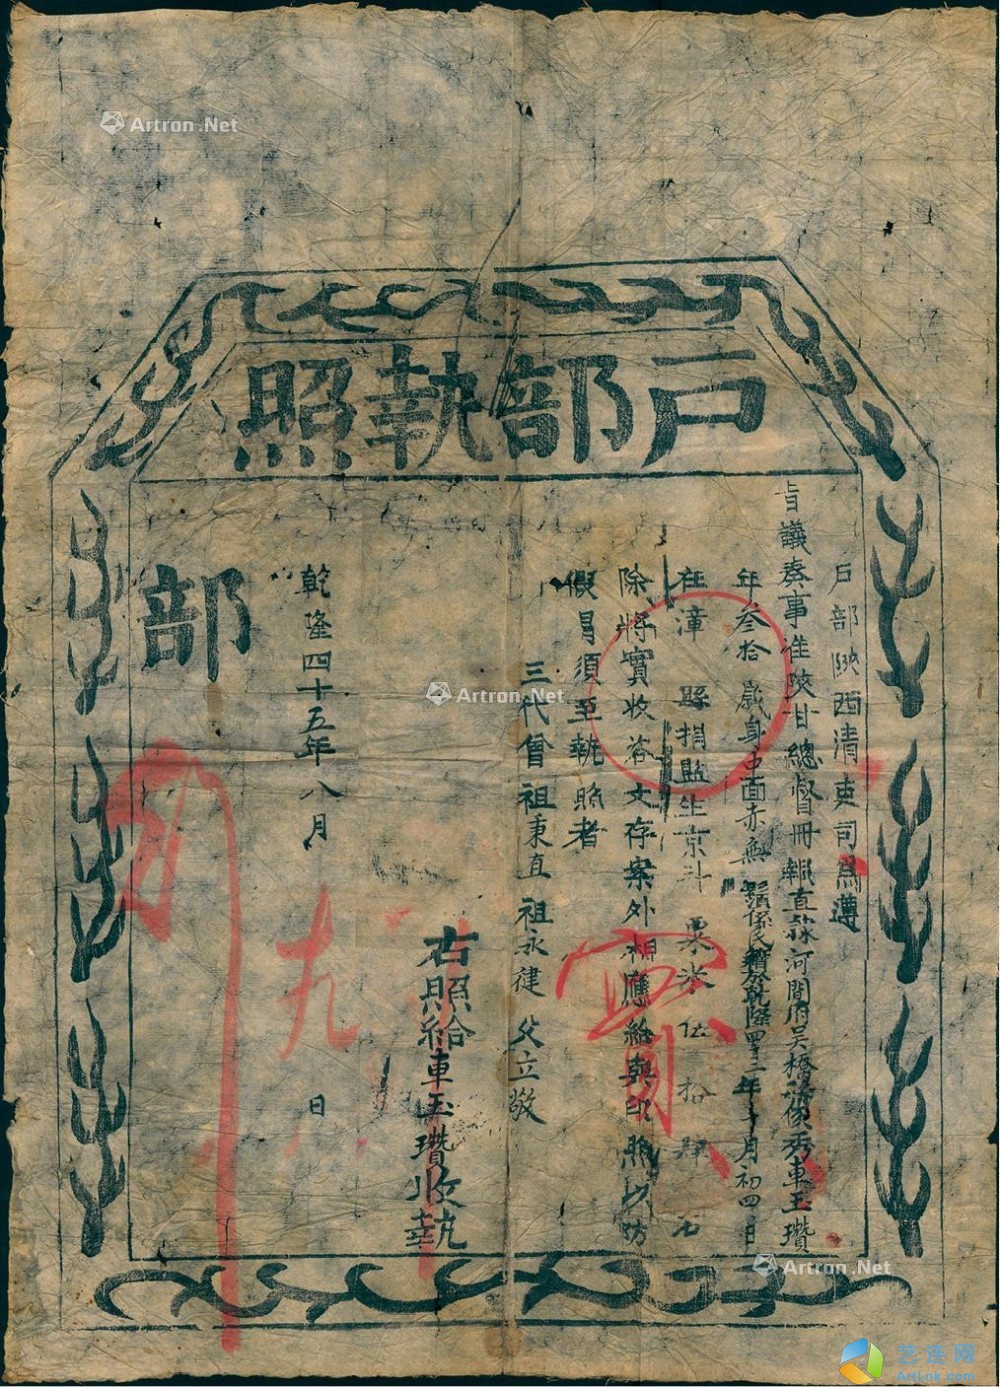 戶部執照
戶部陝西清吏司為遵
旨議奏事准陝甘總督冊報直隸河間府吳橋縣俊秀車玉瓚
年叁拾歲身中面赤無鬚係民籍於乾隆四十二年十月初四日
在漳縣捐監生京斗粟米伍拾肆石
除將實收咨文存案外相應給與印照以防
假冒須至執照者
三代曾祖秉直祖永健父立敬
右照給車玉瓚收執
乾隆四十五年八月 日
九
部
實
Artron.Net
Artron.Net
Artron.Net
艺连网
ArtLnk.com